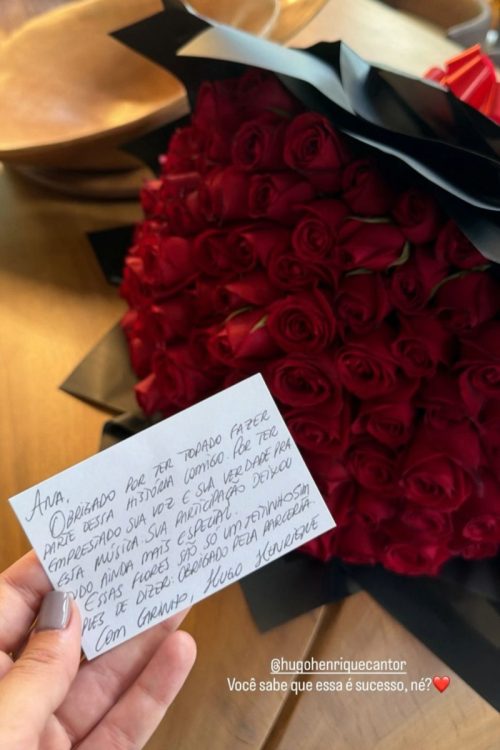 ANA,
OBRIGADO POR TER TOPADO FAZER
PARTE DESSA HISTÓRIA COMIGO. POR TER
EMPRESTADO SUA VOZ E SUA VERDADE PRA
ESTA MÚSICA. SUA PARTICIPAÇÃO DEIXOU
TUDO AINDA MAIS ESPECIAL.
ESSAS FLORES SÃO SÓ UM JEITINHO SIM
PLES DE DIZER: OBRIGADO PELA PARCERIA.
COM CARINHO, HUGO HENRIQUE
@hugohenriquecantor
Você sabe que essa é sucesso, né?❤️